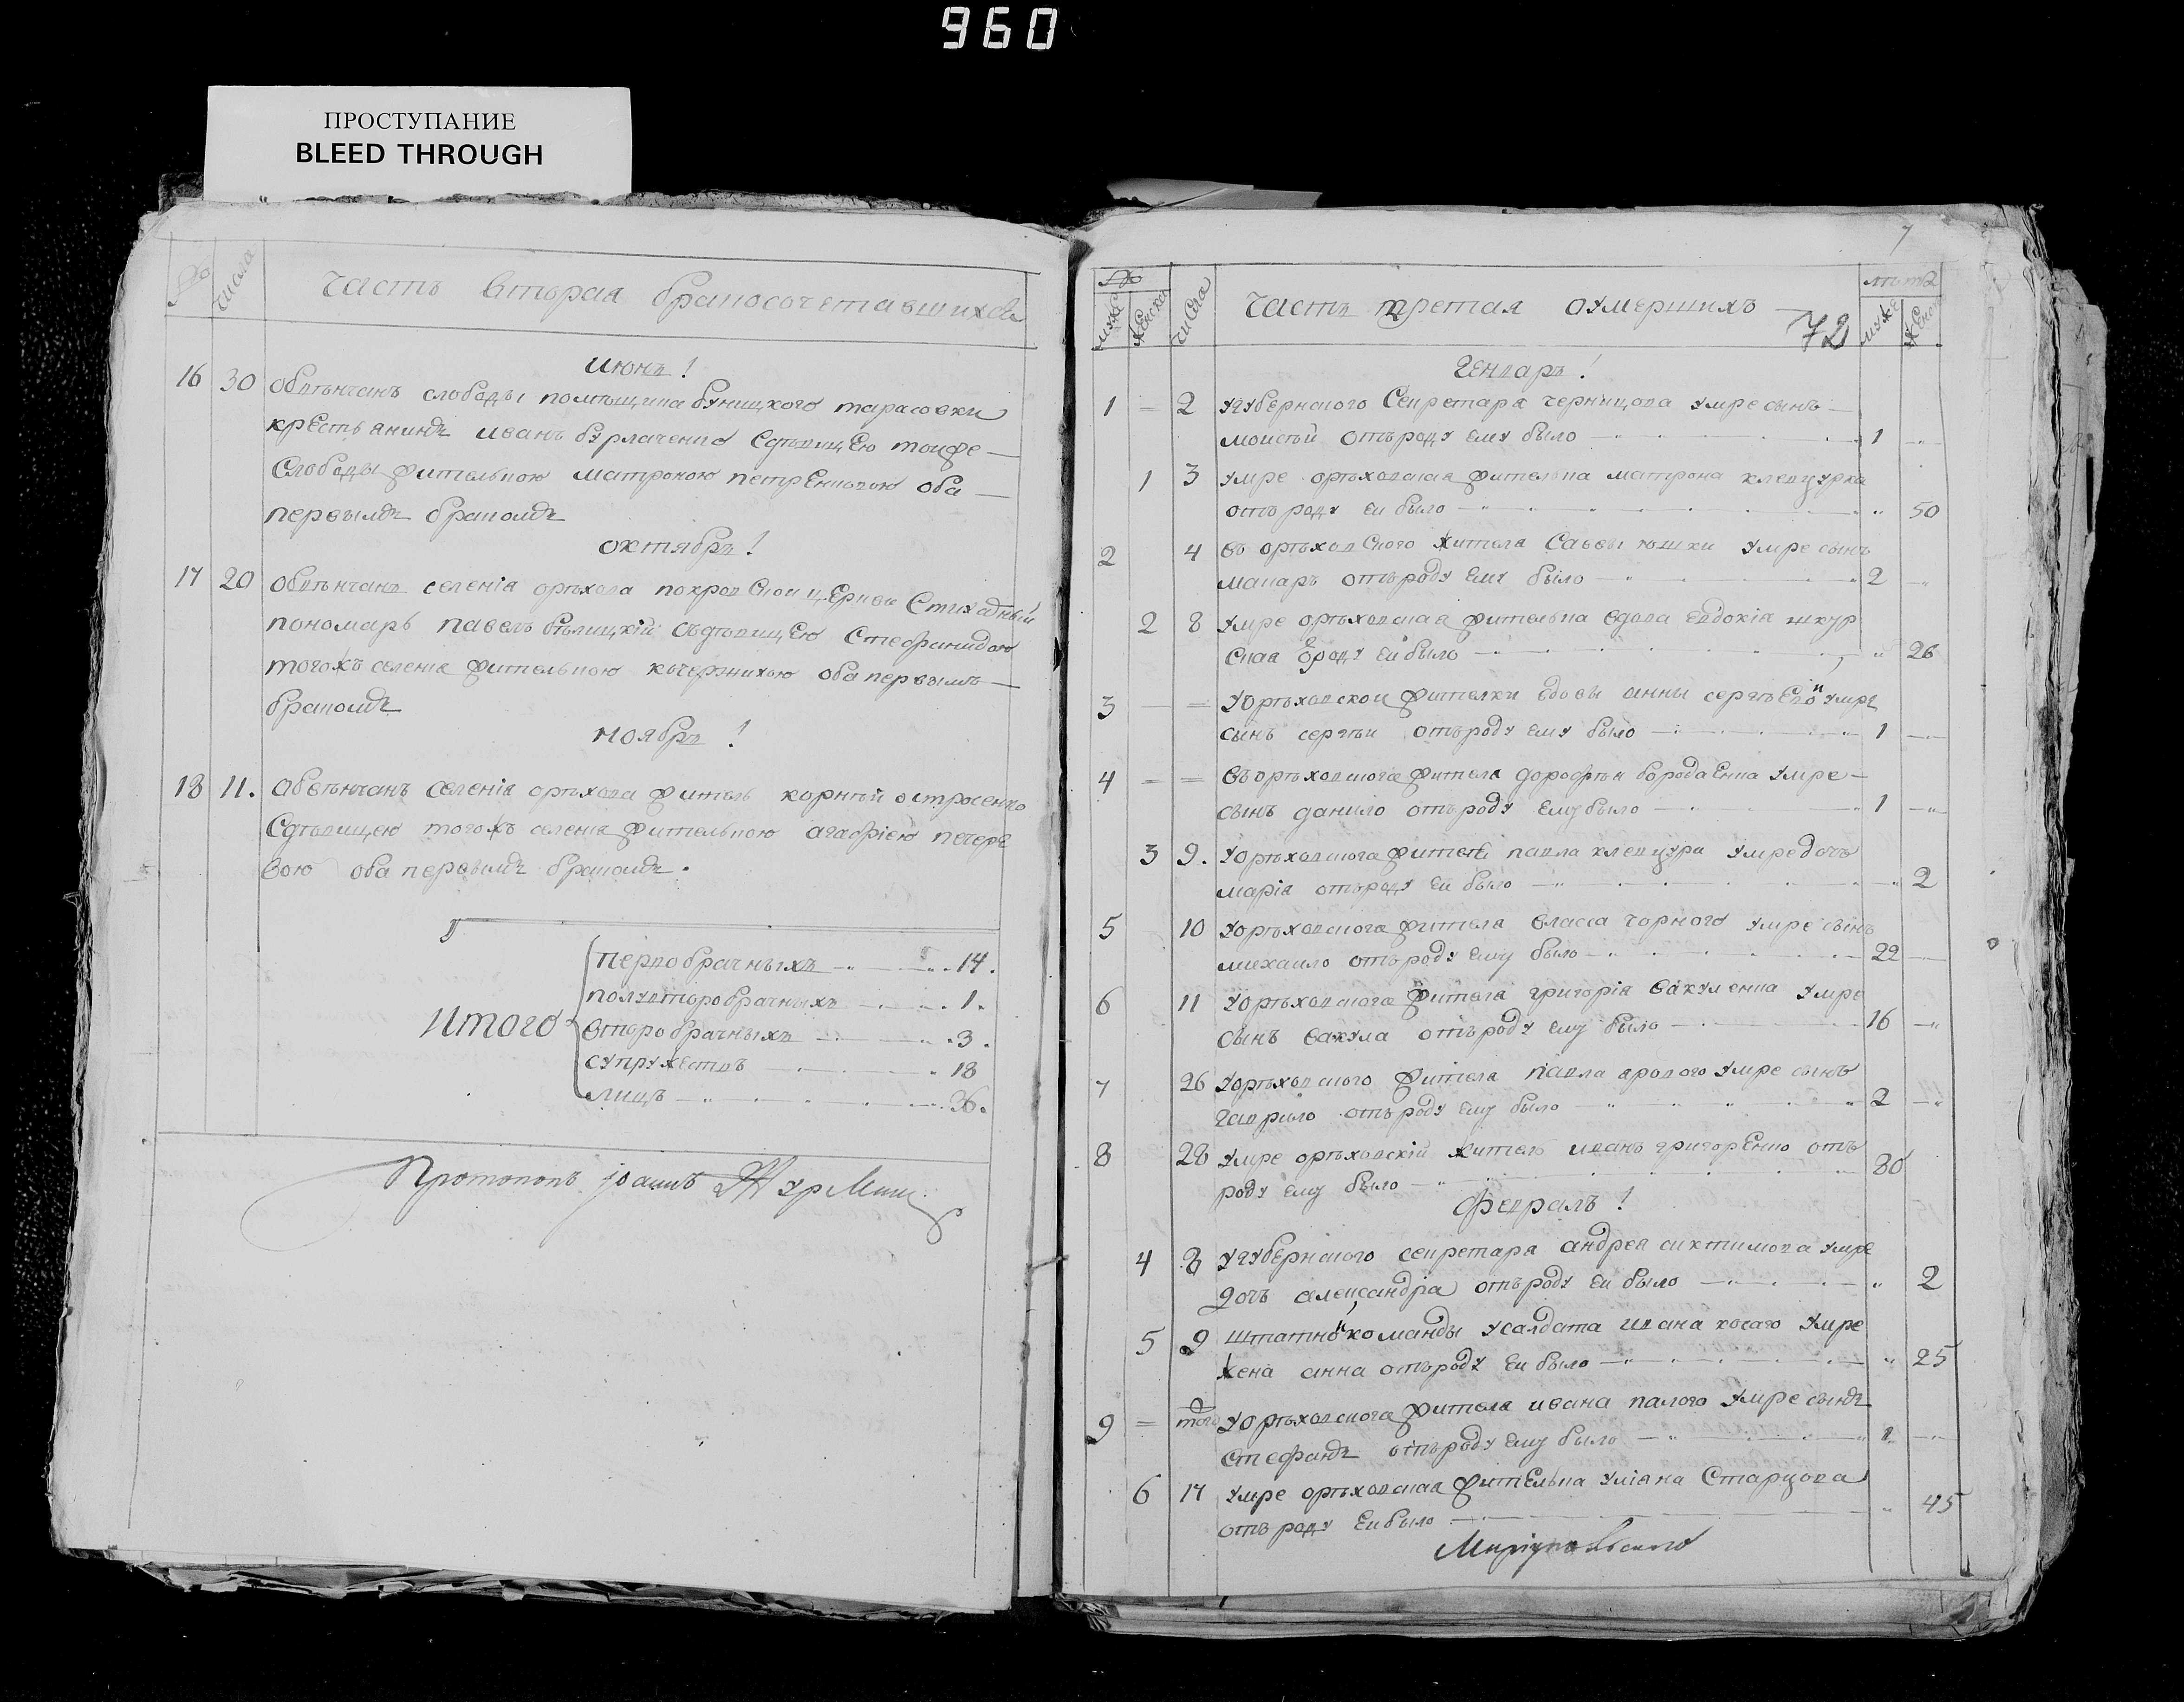 960
ПРОСТУПАНИЕ
BLEED THROUGH
№ числа
Часть вторая бракосочетавшихся
июнь!
16 30 Обвѣнчанъ слободы помѣщика буницкого тарасовки
крестьянинъ иванъ бурлаченко Сдѣвицею тоиже
Слободы жителькою матроною петренковою оба
первымъ бракомъ
октябрь!
17 20 Обвѣнчанъ селенія орѣхова покровской церкви Стихарный
пономарь павелъ бѣлицкій съдѣвицею Стефанидою
тогожъ селенія жителькою кочержихою оба первымъ
бракомъ
ноябрь!
18 11. Обвѣнчанъ Селенія орѣхова житель корнѣй остроенко
Сдѣвицею тогожъ селенія жителькою агафіею печере
вою оба первымъ бракомъ.
Итого
первобрачныхъ 14.
полувторобрачныхъ 1.
второбрачныхъ 3.
супружествъ 18
лицъ 36.
Протопопъ Іоаннъ
7
№ мужс женска числа
Часть третая оумершихъ
72
лѣта муже женск
Генварь!
1 2 Угубернского Секретаря черницова умре сынъ
моисѣй отъроду ему было 1
1 3 умре орѣховская жителька матрона клевцурка
отъ роду ей было 50
2 4 въ орѣховского жителя Саввы юшки умре сынъ
макаръ отъроду ему было 2
2 8 умре орѣховская жителька вдова евдокія шкур
ская ѿроду ей было 26
3 Уорѣховской жителки вдовы анны сергѣевой умре
сынъ сергѣй отъроду ему было 1
4 въорѣховскога жителя дорофѣя бородаенка умре
сынъ данило отъроду ему было 1
3 9. Уорѣховскога жителя павла клевцура умре дочь
марія отъроду ей было 2
5 10 Уорѣховскога жителя власа чорного умре сынъ
михаило отъроду ему было 22
6 11 Уорѣховскога жителя григорія вакуленка умре
сынъ вакула отъроду ему было 16
7 26 Уорѣховского жителя павла ярового умре сынъ
гаврило отъроду ему было 2
8 28 умре орѣховскій житель иванъ григоренко отъ
роду ему было 80
февраль!
4 8 Угубернского секретаря андрея ахтимова умре
дочь александріа отъроду ей было 2
5 9 штатной команды усалдата ивана косаго умре
жена анна отъроду ей было 25
9 того Уорѣховскога жителя ивана палого умре сынъ
Стефанъ отъроду ему было 1
6 17 умре орѣховская жителька уліяна Старцова
отъ роду ей было 45
Маріупольского